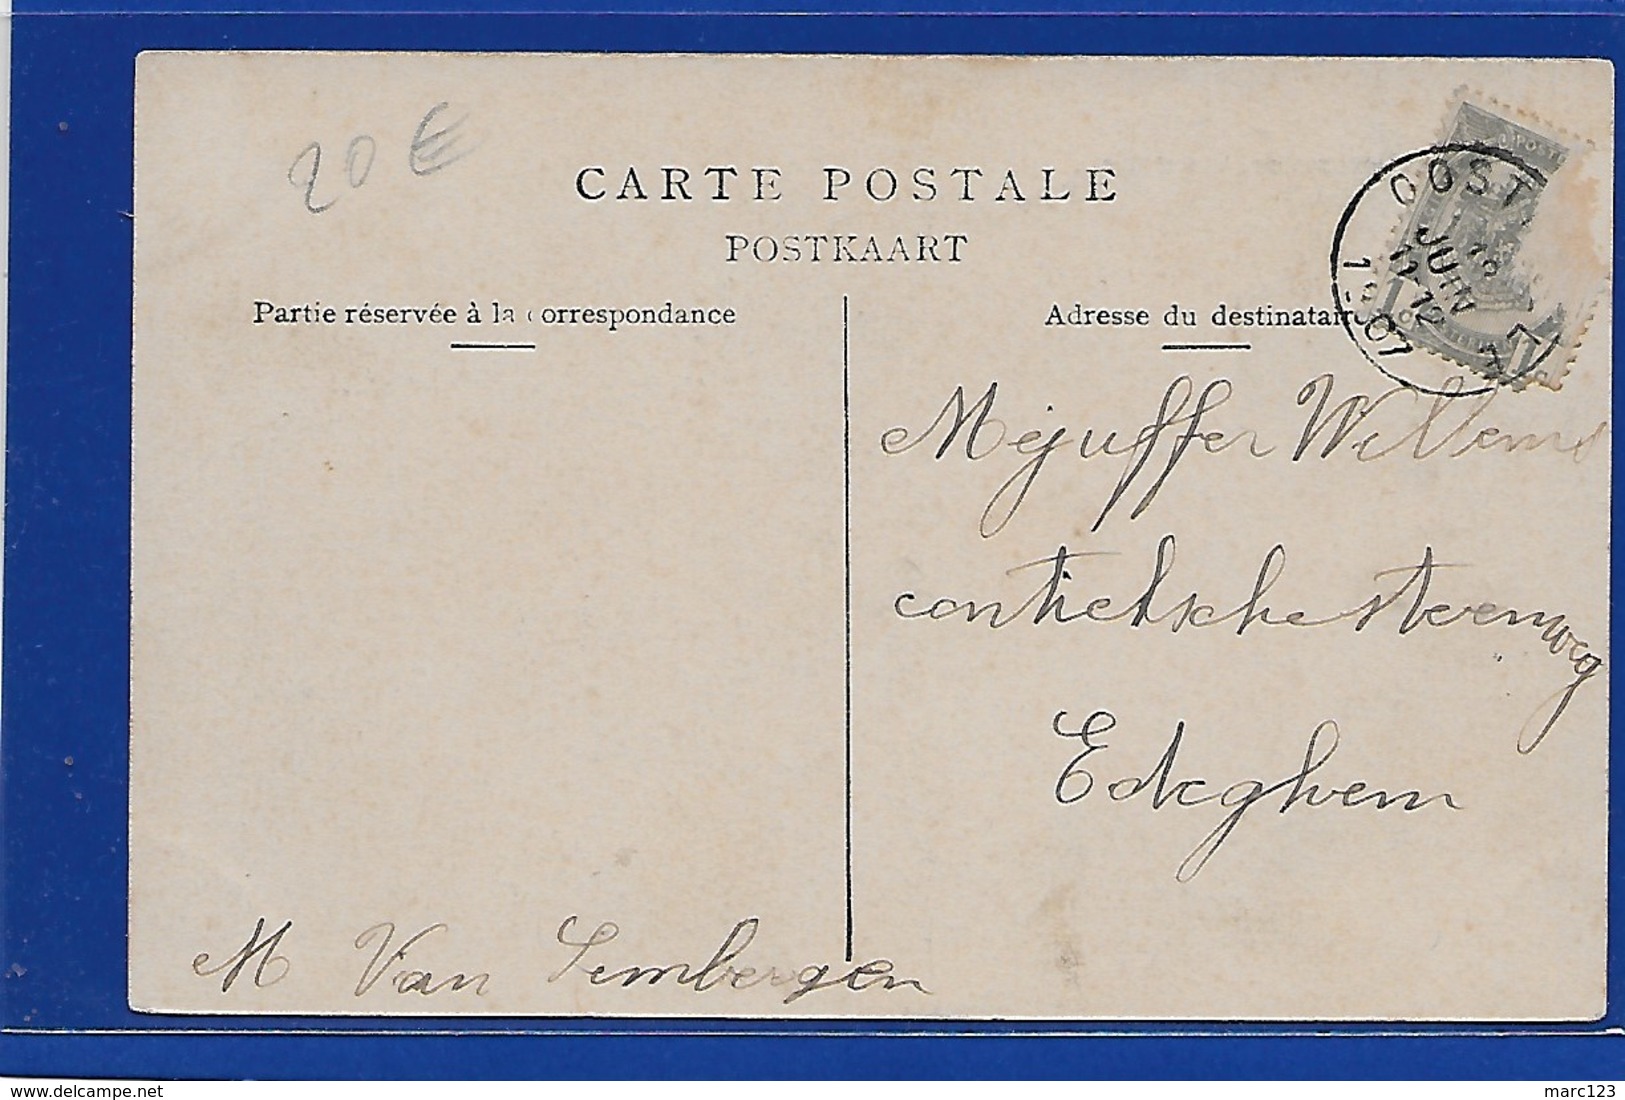 20 €
CARTE POSTALE
POSTKAART
Partie réservée à la correspondance
Adresse du destinataire
OOST
JUIN
12-12
1907
1
Mejuffer Willems
contichschesteenweg
Edeghem
M Van Lembergen
delcampe.net
marc123